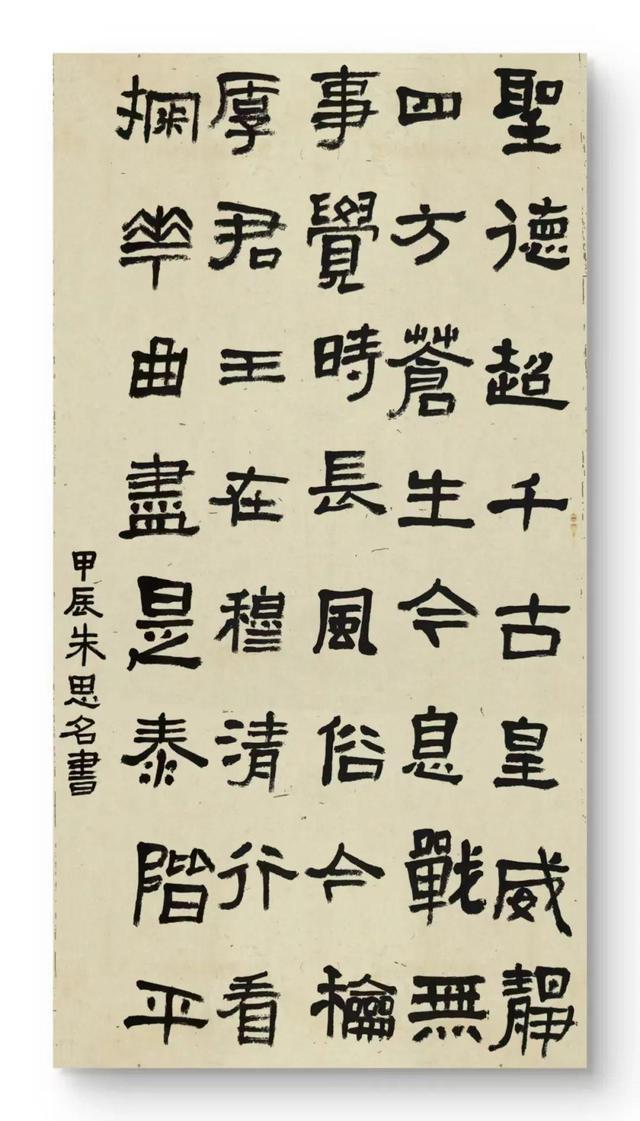 聖德超千古皇威靜
四方蒼生今息戰無
事覺時長風俗今龢
厚君王在穆清行看
掬華曲盡是泰階平
甲辰朱思名書